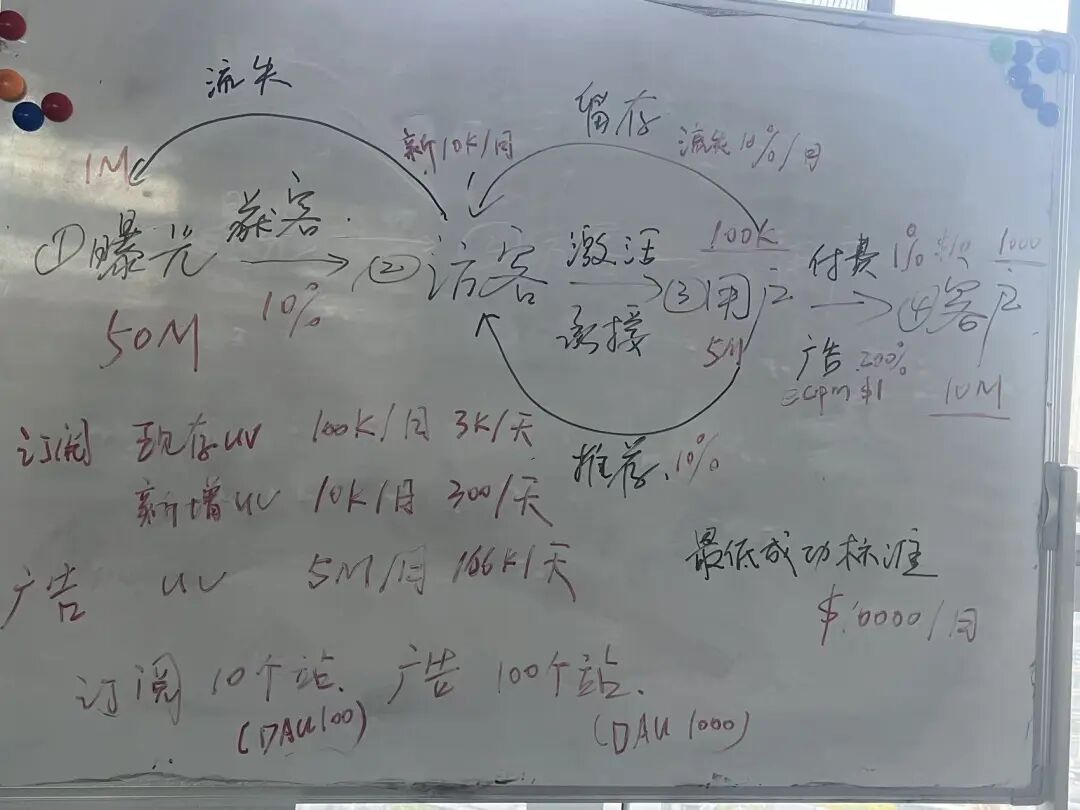 流失
留存
新10K/月
流失10%/月
1M
①曝光
获客
10%
②访客
激活
承接
100K
③用户
付费1%
1000
④客户
50M
5M
广告 200%
ecpm $1
10M
推荐 10%
订阅 现存UV 100K/月 3K/天
新增UV 10K/月 300/天
广告 UV 5M/月 166K/天
最低成功标准
$10000/月
订阅 10个站. 广告 100个站.
(DAU100) (DAU 1000)